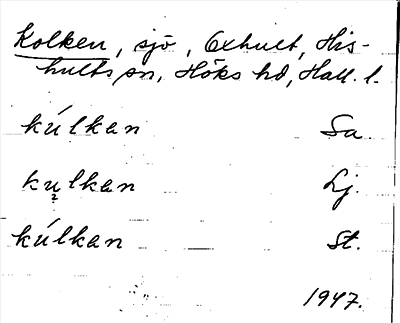 Kolken, sjö, Oxhult, His-
hults sn, Höks hd, Hall. l.
kúlkan Sa.
kulkan Lj.
kúlkan St.
1947.